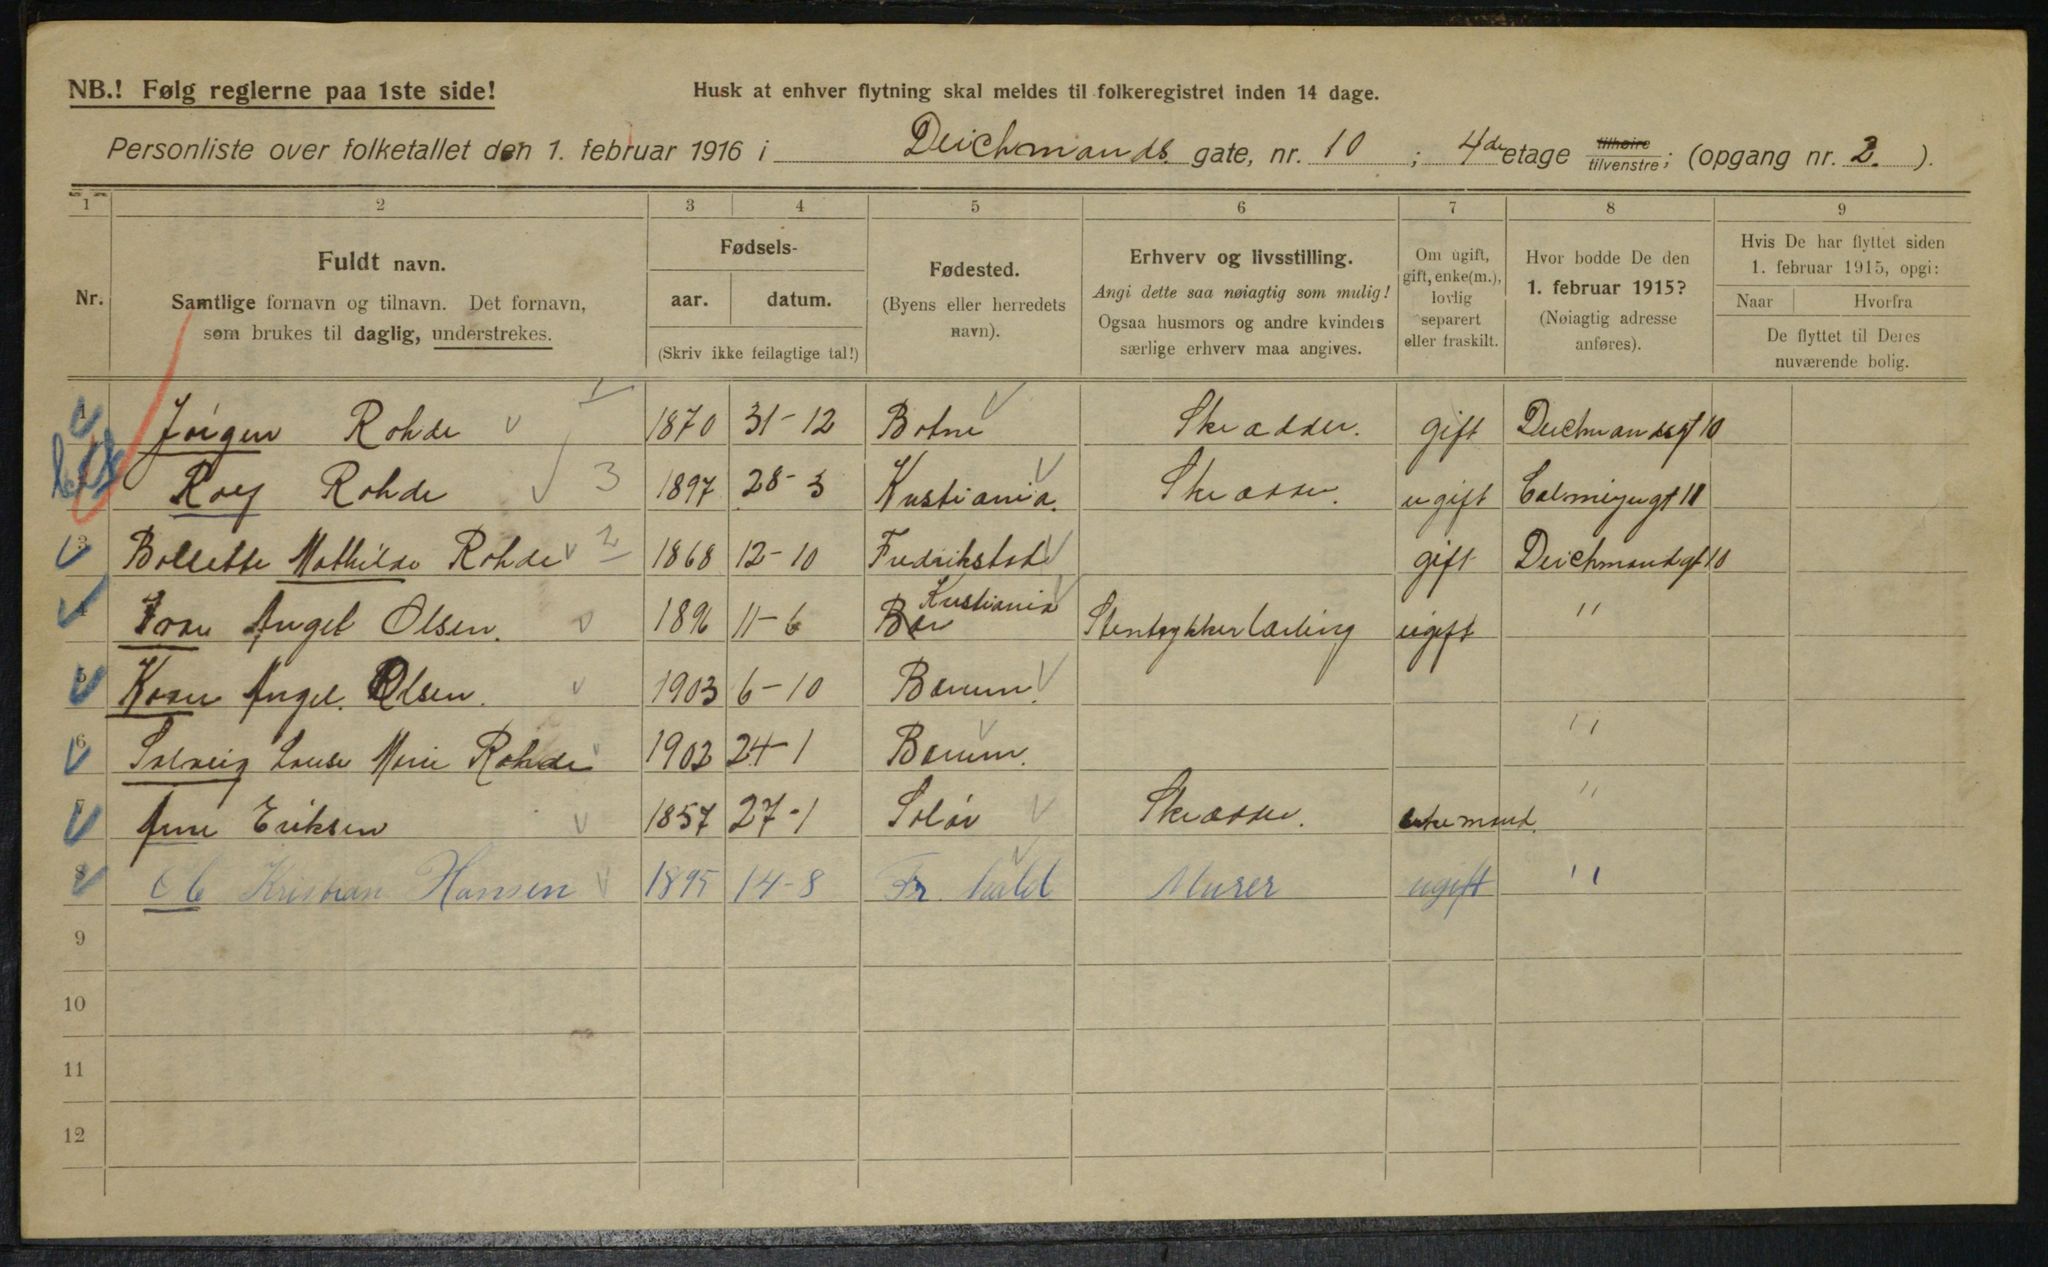 NB.! Følg reglerne paa 1ste side!
Husk at enhver flytning skal meldes til folkeregistret inden 14 dage.
Personliste over folketallet den 1. februar 1916 i Deichmands gate, nr. 10; 4de etage tilhøire/tilvenstre; (opgang nr. 2.).
1 2 3 4 5 6 7 8 9
Nr.
Fuldt navn.
Samtlige fornavn og tilnavn. Det fornavn,
som brukes til daglig, understrekes.
Fødsels-
aar. datum.
(Skriv ikke feilagtige tal!)
Fødested.
(Byens eller herredets
navn).
Erhverv og livsstilling.
Angi dette saa nøiagtig som mulig!
Ogsaa husmors og andre kvinders
særlige erhverv maa angives.
Om ugift,
gift, enke(m.),
lovlig
separert
eller fraskilt.
Hvor bodde De den
1. februar 1915?
(Nøiagtig adresse
anføres).
Hvis De har flyttet siden
1. februar 1915, opgi:
Naar Hvorfra
De flyttet til Deres
nuværende bolig.
Jørgen Rohde 1 1870 31-12 Botne Skrædder. gift Deichmandsgt 10
Rolf Rohde 3 1897 28-3 Kristiania. Skrædder. ugift
3 Bolette Mathilde Rohde 2 1868 12-10 Fredrikstad gift Deichmandsgt 10
4 Angel Olsen. 1896 11-6 Kristiania Stentrykkerlærling ugift "
5 Angel. Olsen. 1903 6-10 Bærum.
6 Solveig Louise Marie Rohde 1902 24-1 Bærum. "
7 Arne Eriksen 1857 27-1 Solør Skrædder. enkemand. "
8 Ole Kristian Hansen 1895 14-8 Fr. hald Murer ugift "
9
10
11
12